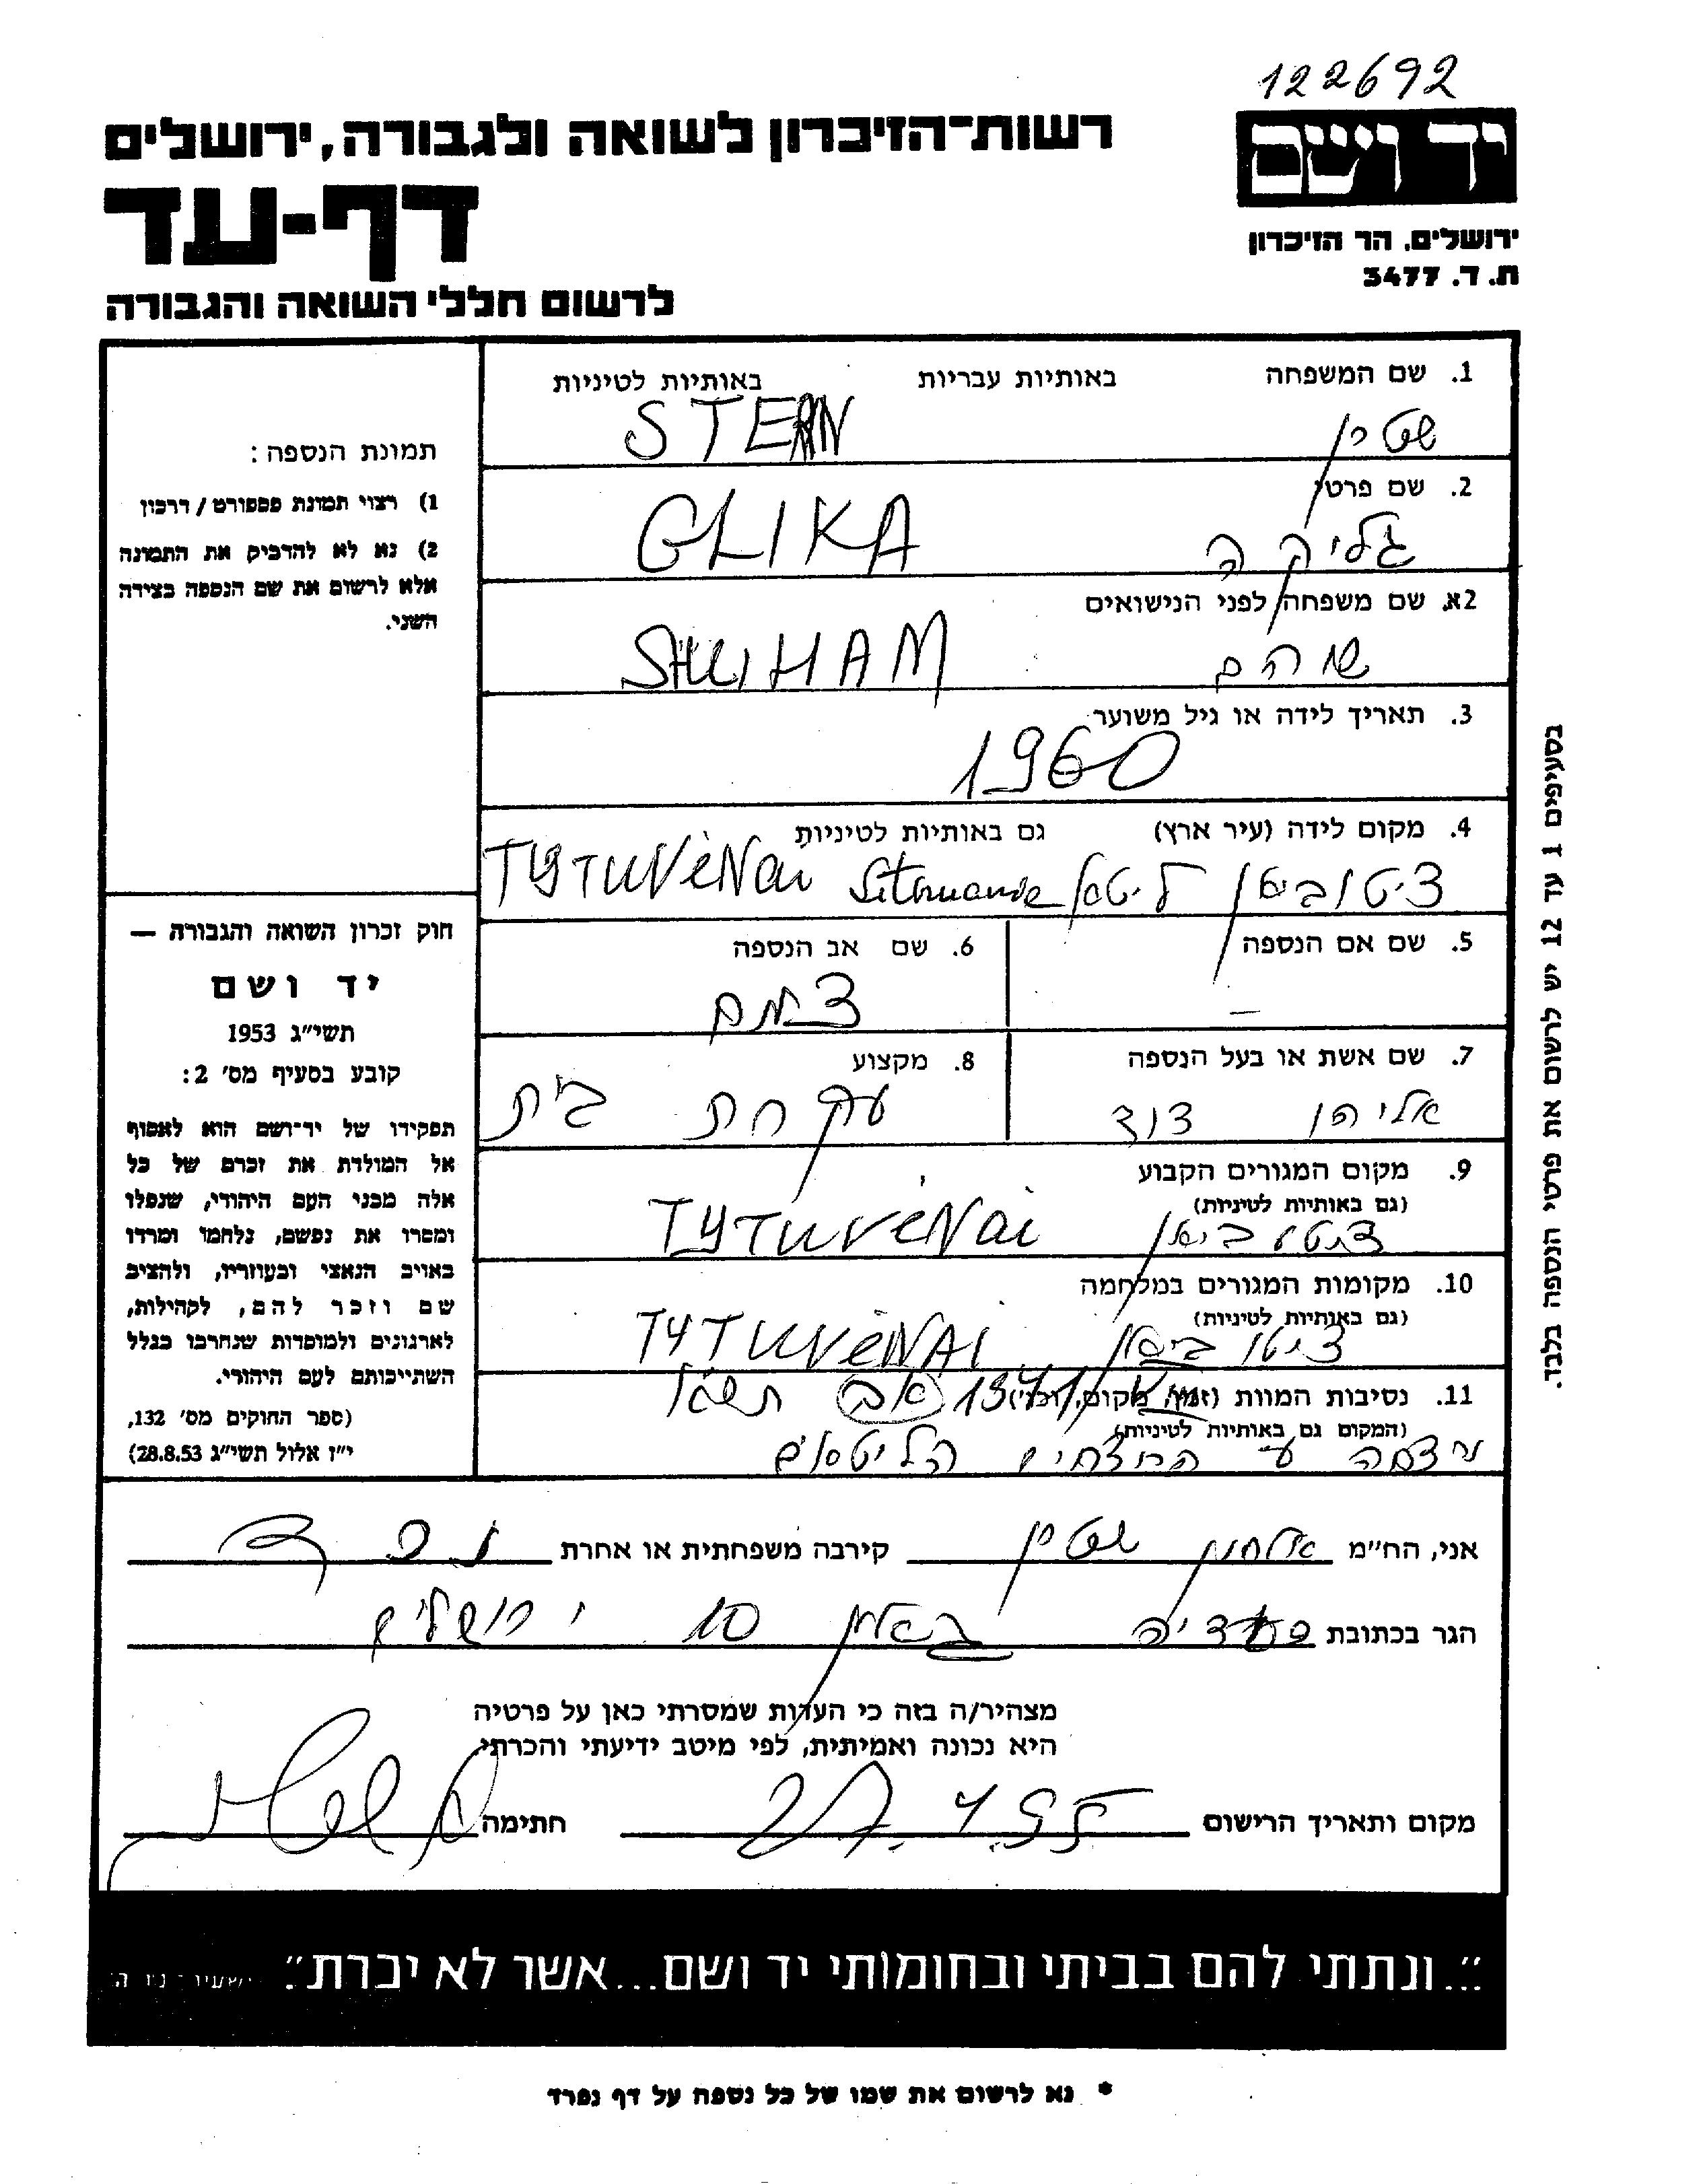 122692
יד ושם
ירושלים, הר הזיכרון
ת.ד. 3477
רשות־הזיכרון לשואה ולגבורה, ירושלים
דף-עד
לרשום חללי השואה והגבורה
1. שם המשפחה באותיות עבריות באותיות לטיניות
שטרן STERN
2. שם פרטי
גליקה GLIKA
2א. שם משפחה לפני הנישואים
שוהם SHUHAM
3. תאריך לידה או גיל משוער
1960
4. מקום לידה (עיר ארץ) גם באותיות לטיניות
ציטוביאן ליטא TYTUVėNAi
5. שם אם הנספה
—
6. שם אב הנספה
7. שם אשת או בעל הנספה
אליהו דוד
8. מקצוע
עקרת בית
9. מקום המגורים הקבוע
(גם באותיות לטיניות)
ציטוביאן TYTUVėNAi
10. מקומות המגורים במלחמה
(גם באותיות לטיניות)
ציטוביאן TYTUVėNAI
11. נסיבות המוות (זמן, מקום, וכו')
1941 אב תש"א
(המקום גם באותיות לטיניות)
נרצחה ע הרוצחים הליטאים
תמונת הנספה:
1) רצוי תמונת פספורט / דרכון
2) נא לא להדביק את התמונה
אלא לרשום את שם הנספה בצידה
השני.
חוק זכרון השואה והגבורה —
יד ושם
תשי"ג 1953
קובע בסעיף מס' 2:
תפקידו של יד־ושם הוא לאסוף
אל המולדת את זכרם של כל
אלה מבני העם היהודי, שנפלו
ומסרו את נפשם, נלחמו ומרדו
באויב הנאצי ובעוזריו, ולהציב
שם וזכר להם, לקהילות,
לארגונים ולמוסדות שנחרבו בגלל
השתייכותם לעם היהודי.
(ספר החוקים מס' 132,
י"ז אלול תשי"ג 28.8.53)
בסעיפים 1 עד 12 יש לרשום את פרטי הנספה בלבד.
אני, הח"מ אלחנן שטרן קירבה משפחתית או אחרת נכד
הגר בכתובת סעדיה גאון 10 ירושלים
מצהיר/ה בזה כי העדות שמסרתי כאן על פרטיה
היא נכונה ואמיתית, לפי מיטב ידיעתי והכרתי.
מקום ותאריך הרישום 27.4.95 חתימה
"...ונתתי להם בביתי ובחומותי יד ושם...אשר לא יכרת" ישעיהו נו ה
* נא לרשום את שמו של כל נספה על דף נפרד